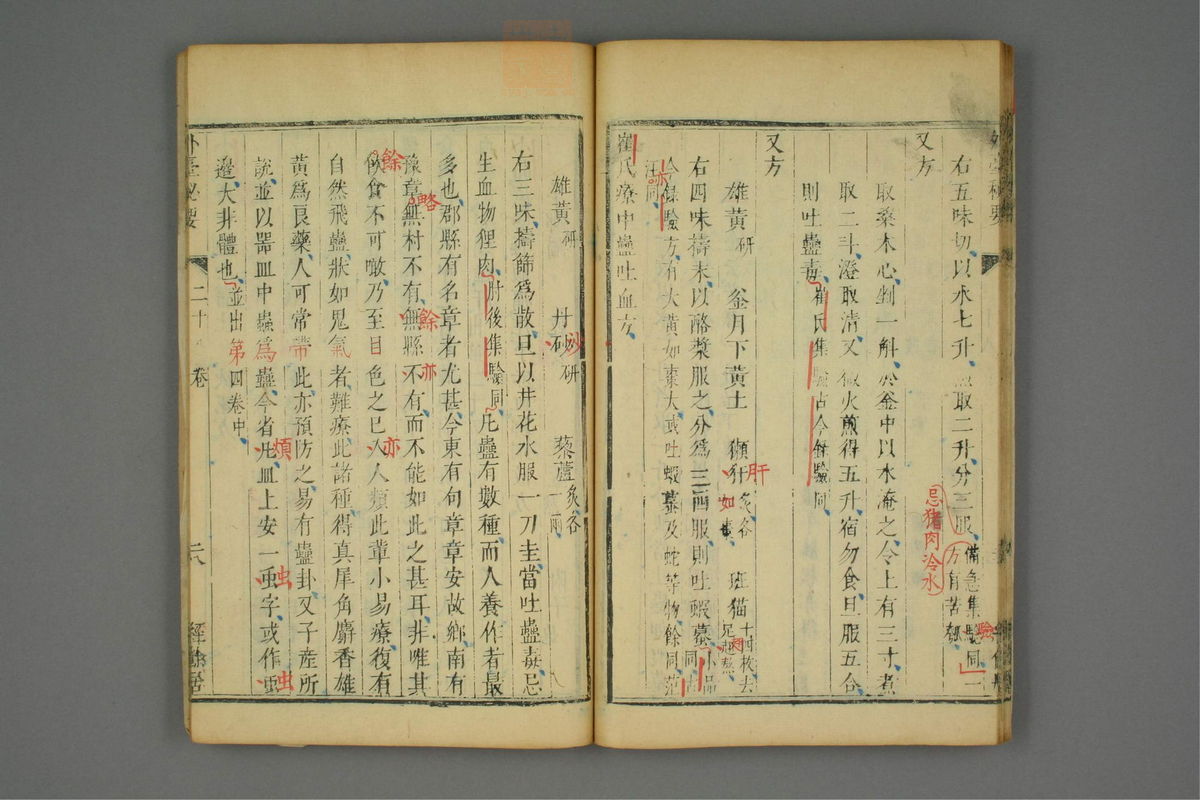 右五味切以水七升取二升分三服備急集驗同一方有苦瓠
忌猪肉冷水
又方
取桑木心剉一斛於釜中以水淹之令上有三寸煮
取二斗澄取清又微火煎得五升宿勿食旦服五合
則吐蠱毒崔氏集驗古今錄驗同
又方
雄黃研 釜月下黃土 獺肝炙各如棗 班猫十四枚去足翅熬
右四味擣末以酪漿服之分爲三四服則吐蝦蟇小品同古
今錄驗方有大黃如棗大或吐蝦蟇及蛇等物餘同范
汪同
崔氏療中蠱吐血方
雄黃研 丹砂研 藜蘆炙各一兩
右三味擣篩爲散旦以井花水服一刀圭當吐蠱毒忌
生血物狸肉肘後集驗同凡蠱有數種而人養作者最
多也郡縣有名章者尤甚今東有句章章安故鄉南有
豫章無村不有無縣不有而不能如此之甚耳非唯其
飲食不可噉乃至目色之已入人類此輩小易療復有
自然飛蠱狀如鬼氣者難療此諸種得真犀角麝香雄
黃爲良藥人可常帶此亦預防之易有蠱卦又子産所
說並以器皿中蟲爲蠱今省凡皿上安一䖝字或作䖝
邊大非體也並出第四卷中
外臺秘要
二十 卷
二八
經餘居